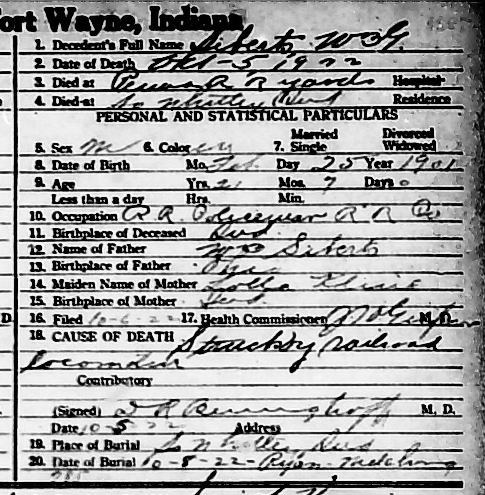 ort Wayne, Indiana
1. Decedent's Full Name Siberts, Wm G.
2. Date of Death Oct - 5, 1922
3. Died at Penna R R yards Hospital
4. Died at So Whitley Ind Residence
PERSONAL AND STATISTICAL PARTICULARS
Married Divorced
5. Sex M 6. Color W 7. Single Widowed
8. Date of Birth Mo. Feb Day 25 Year 1901
9. Age Yrs. 21 Mos. 7 Days 0
Less than a day Hrs. Min.
10. Occupation R R Policeman R R Co
11. Birthplace of Deceased Ind
12. Name of Father Wm Siberts
13. Birthplace of Father
14. Maiden Name of Mother Kline
15. Birthplace of Mother Ind
16. Filed 10-6-22 17. Health Commissioner M. D.
18. CAUSE OF DEATH Struck by railroad
locomotive
Contributory
(Signed) M. D.
Date 10-5-22 Address
19. Place of Burial So Whitley, Ind
20. Date of Burial 10-8-22